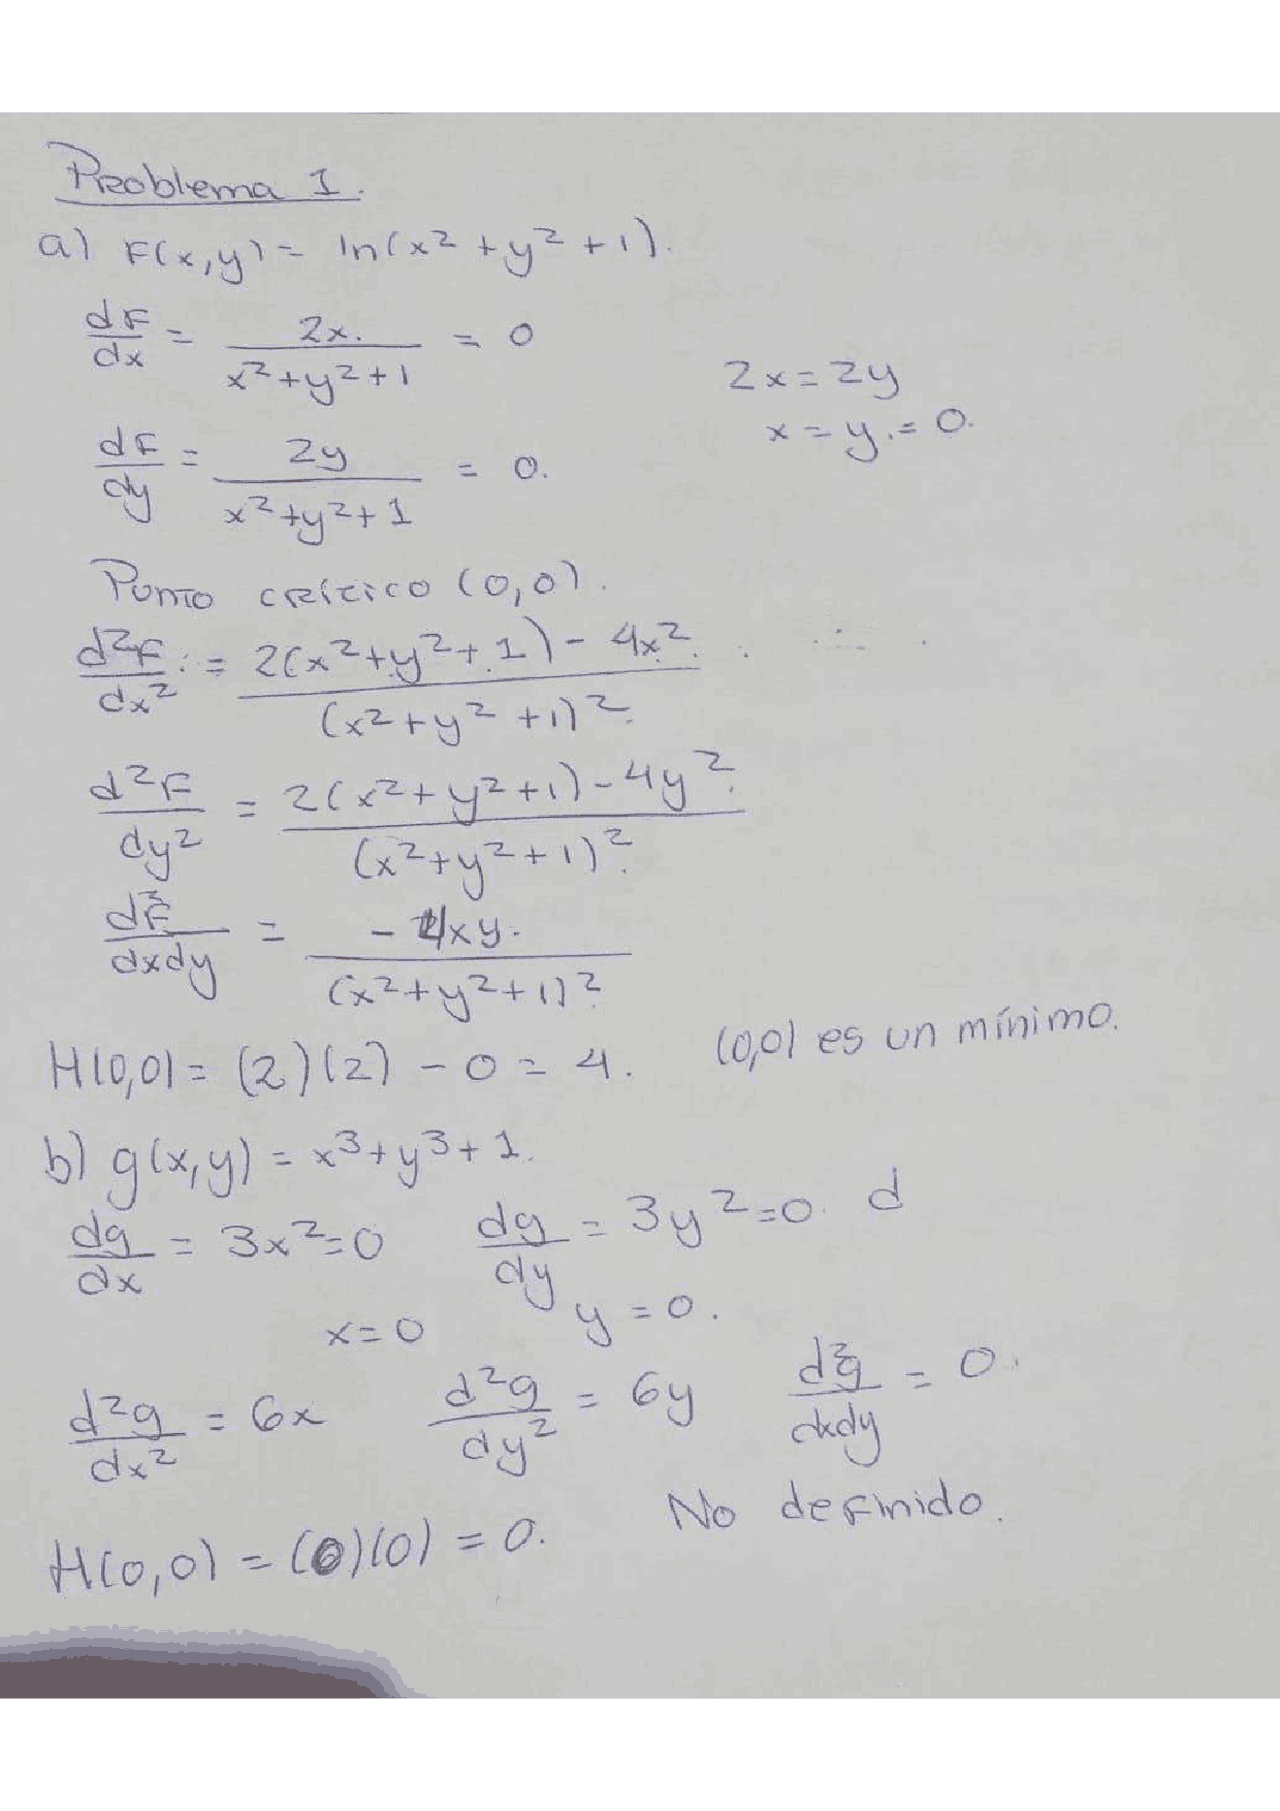 Problema 1.
a) F(x,y) = ln(x² + y² + 1).
dF/dx = 2x./(x²+y²+1) = 0
2x = 2y
x = y. = 0.
dF/dy = 2y/(x²+y²+1) = 0.
Punto crítico (0,0).
d²F/dx² := (2(x²+y²+1) - 4x²)/(x²+y²+1)².
d²F/dy² = (2(x²+y²+1) - 4y²)/(x²+y²+1)².
d²F/dxdy = -4xy./(x²+y²+1)²
H(0,0) = (2)(2) - 0 = 4. (0,0) es un mínimo.
b) g(x,y) = x³+y³+1.
dg/dx = 3x²=0 dg/dy = 3y²=0. d
x=0 y=0.
d²g/dx² = 6x d²g/dy² = 6y d²g/dxdy = 0.
H(0,0) = (0)(0) = 0. No definido.